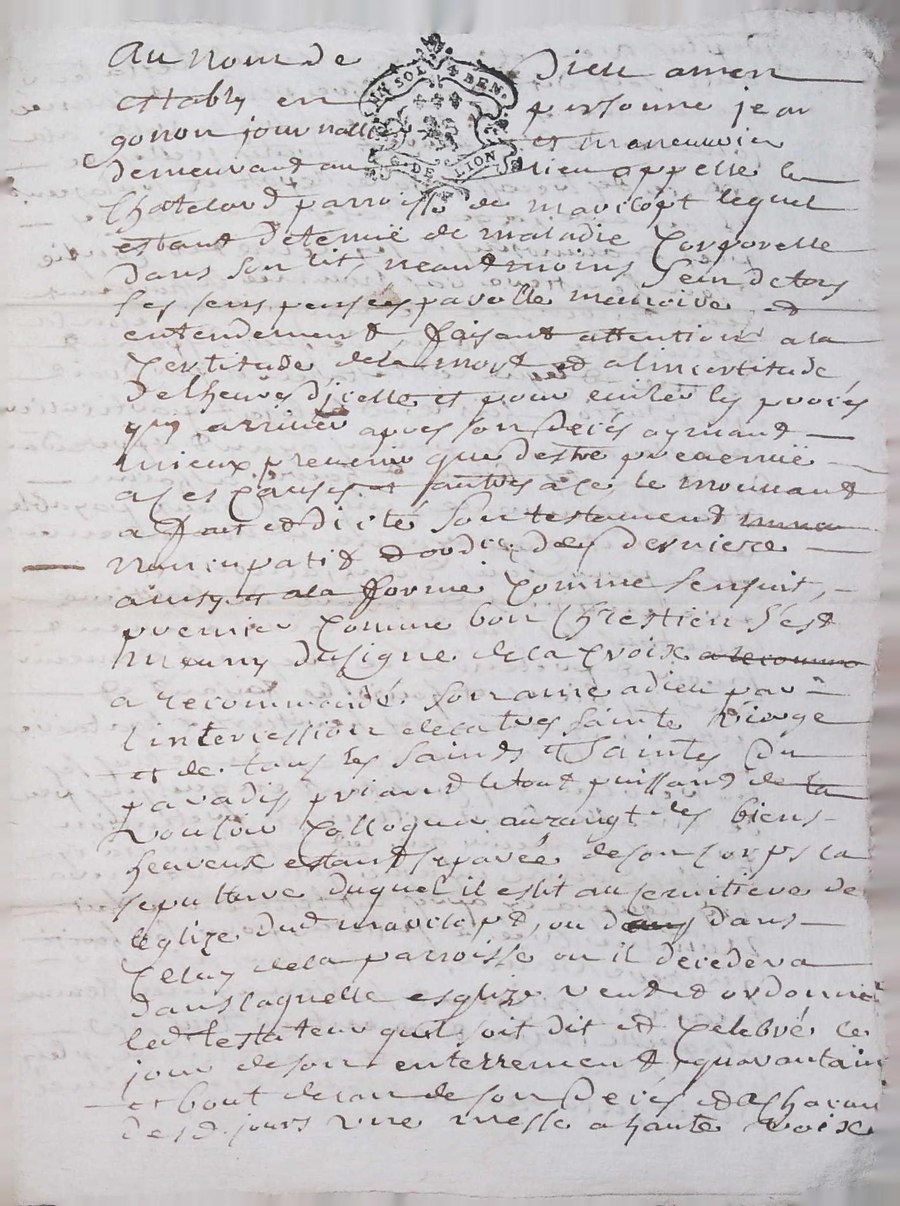 au nom de Dieu amen
UN SOL 4 DEN.
G. DE LION
estably en personne jean
gonon journallier et maneuvrier
demeurant au lieu appellé le
Chatelard parroisse de marclopt lequel
estant detenu de maladie Corporelle
dans son lit neantmoins sein de tous
ses sens pensées parolle memoire et
entendement faisant attention a la
Certitude de la mort et a lincertitude
de lheure dicelle et pour eviter les procés
qui arriver apres son decés aymant
mieux prevenir que destre prevenu
a ses Causes et autres a ce le mouvant
a fait et dicté son testament
nuncupatif et derniere
ainsy et a la forme Comme sensuit,
premier Comme bon Chrestien s'est
muny du signe de la Croix a recomma
a recommandé son ame a dieu par
lintercession de la tres sainte Vierge
et de tous les saints et saintes du
paradis priant le tout puissant de la
vouloir Colloquer au rangt des biens
heureux estant separée de son corps la
sepulture duquel il eslit au cemitiere de
leglize dud marclopt, ou dans
Celuy de la parroisse ou il decedera
dans laquelle esglize veut et ordonne
led testateur quil soit dit et Celebré le
jour de son enterrement quarantain
et bout de lan de son decés et a Chacun
desd jours une messe a haute voix